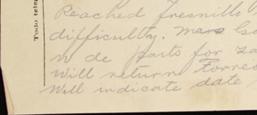 Todo tele
Reached Fresnillo
difficulty.
de parto for za
will return Torreo
Will indicate date